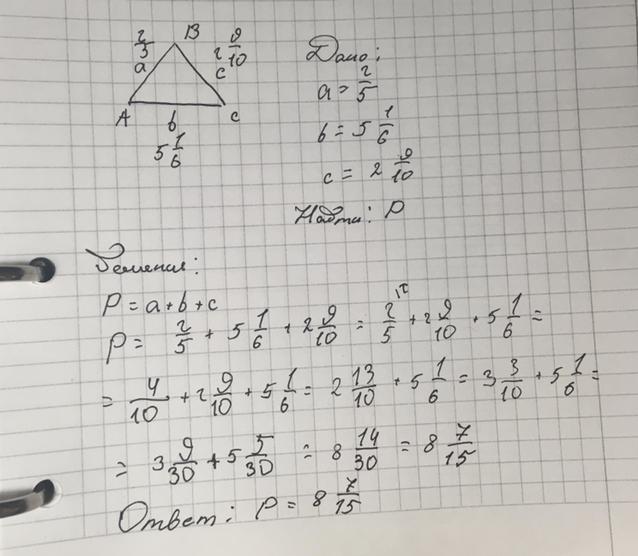 2/5 B 2 9/10
a c
A b C
5 1/6
Дано:
a = 2/5
b = 5 1/6
c = 2 9/10
Найти: P
Решения:
P = a + b + c
P = 2/5 + 5 1/6 + 2 9/10 = 2/5 + 2 9/10 + 5 1/6 =
= 4/10 + 2 9/10 + 5 1/6 = 2 13/10 + 5 1/6 = 3 3/10 + 5 1/6 =
= 3 9/30 + 5 5/30 = 8 14/30 = 8 7/15
Ответ: P = 8 7/15